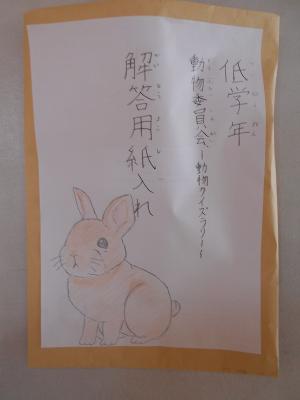 低学年
動物委員会~動物クイズラリー~
解答用紙入れ